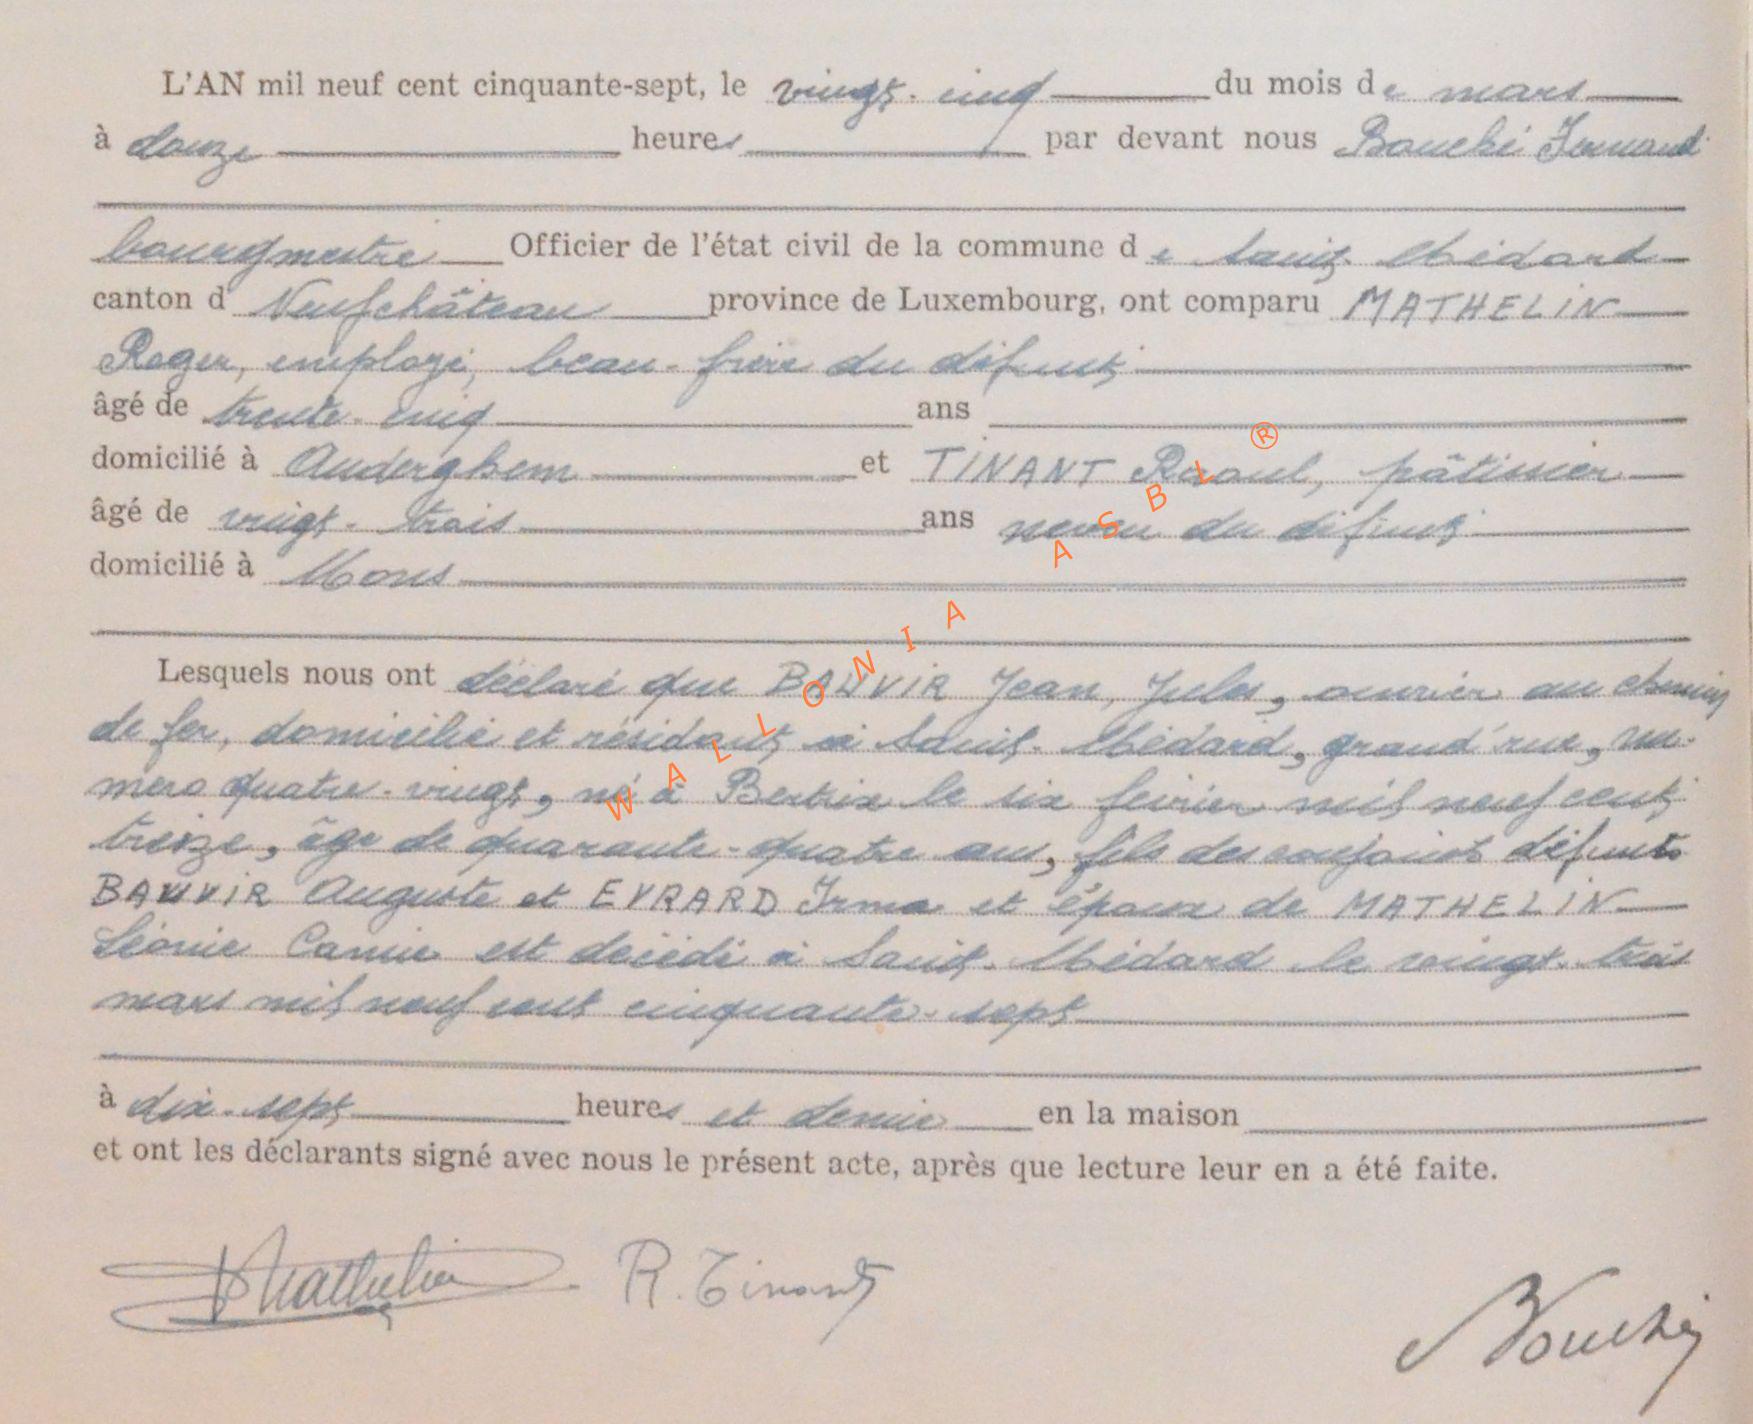 L'AN mil neuf cent cinquante-sept, le vingt-cinq du mois de mars
à douze heures par devant nous Bouché Fernand
bourgmestre Officier de l'état civil de la commune de Saint-Médard
canton d Neufchâteau province de Luxembourg, ont comparu MATHELIN
Roger, employé, beau-frère du défunt
âgé de trente-cinq ans
domicilié à Auderghem et TINANT Raoul, pâtissier
âgé de vingt-trois ans neveu du défunt
domicilié à Mons
Lesquels nous ont déclaré que BAUVIR Jean, Jules, ouvrier au chemin
de fer, domicilié et résidant à Saint-Médard, grand'rue, nu-
mero quatre-vingt, né à Bertrix le six février mil neuf cent
treize, âge de quarante-quatre ans, fils des conjoints défunts
BAUVIR Auguste et EVRARD Irma et époux de MATHELIN
Léonie est décédé à Saint-Médard le vingt-trois
mars mil neuf cent cinquante-sept
à dix-sept heures et demie en la maison
et ont les déclarants signé avec nous le présent acte, après que lecture leur en a été faite.
Mathelin R. Tinant
Bouché
WALLONIA ASBL ®